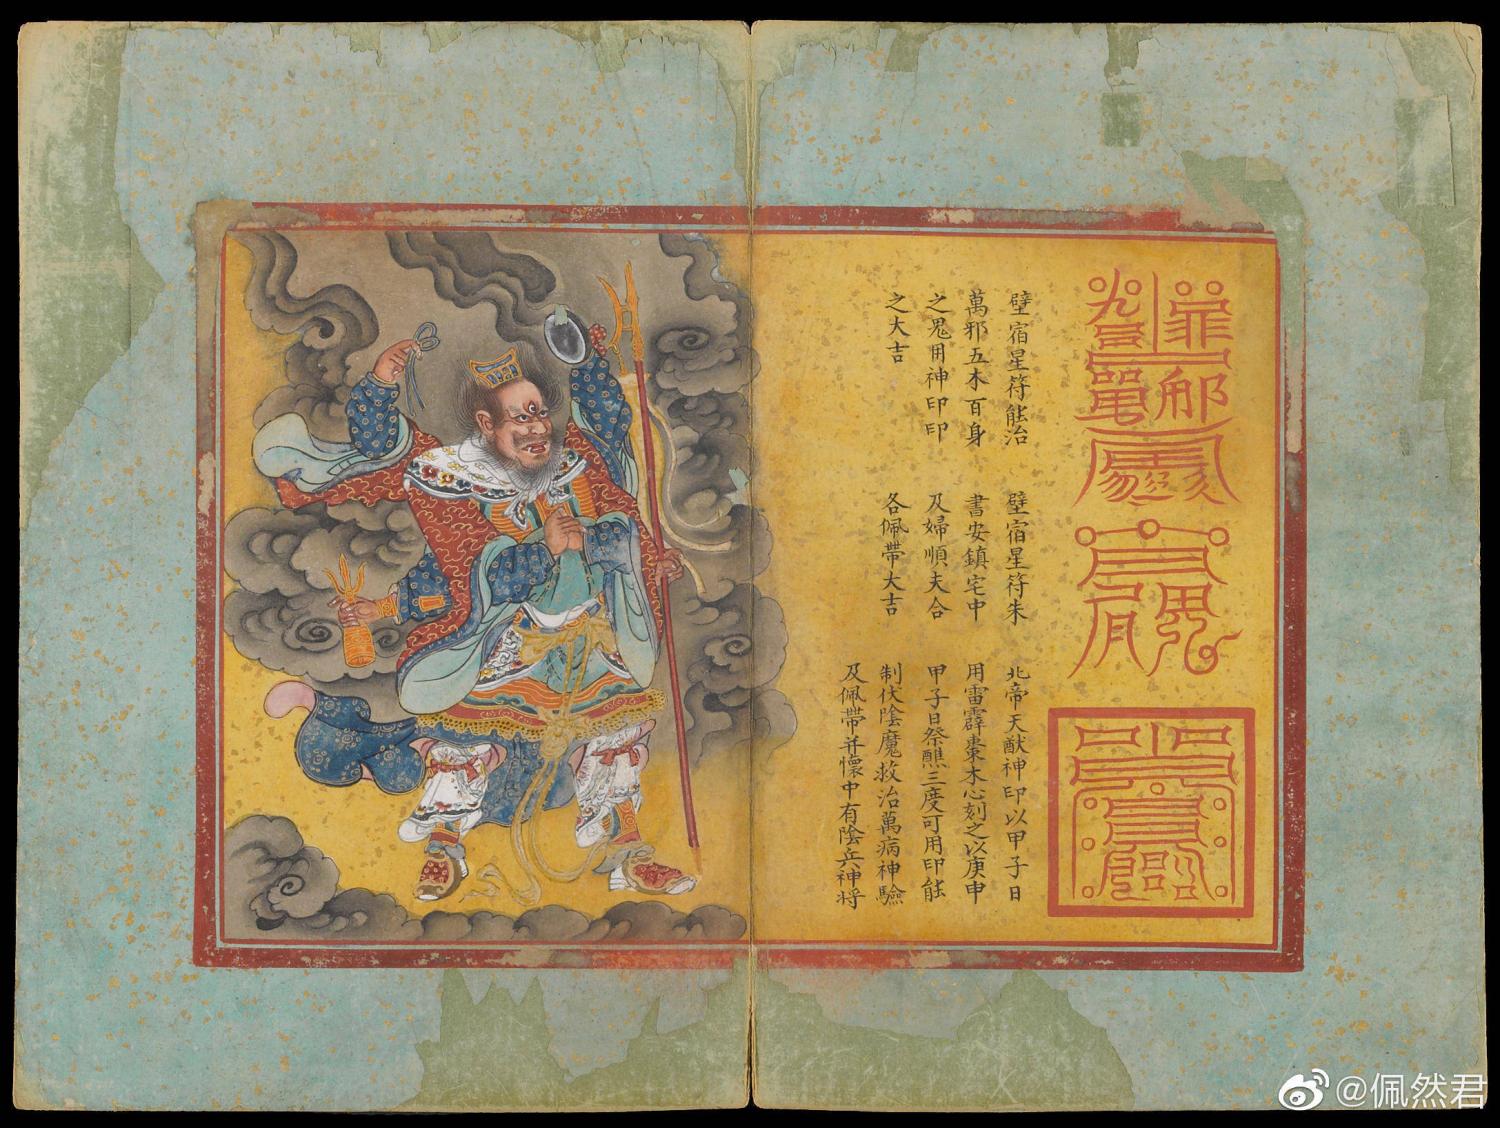 壁宿星符能治
萬邪五木百身
之鬼用神印印
之大吉
壁宿星符朱
書安鎮宅中
及婦順夫合
各佩带大吉
北帝天猷神印以甲子日
用雷霹棗木心刻之以庚申
甲子日祭醮三度可用印能
制伏陰魔救治萬病神驗
及佩帶并懷中有陰兵神将
@佩然君